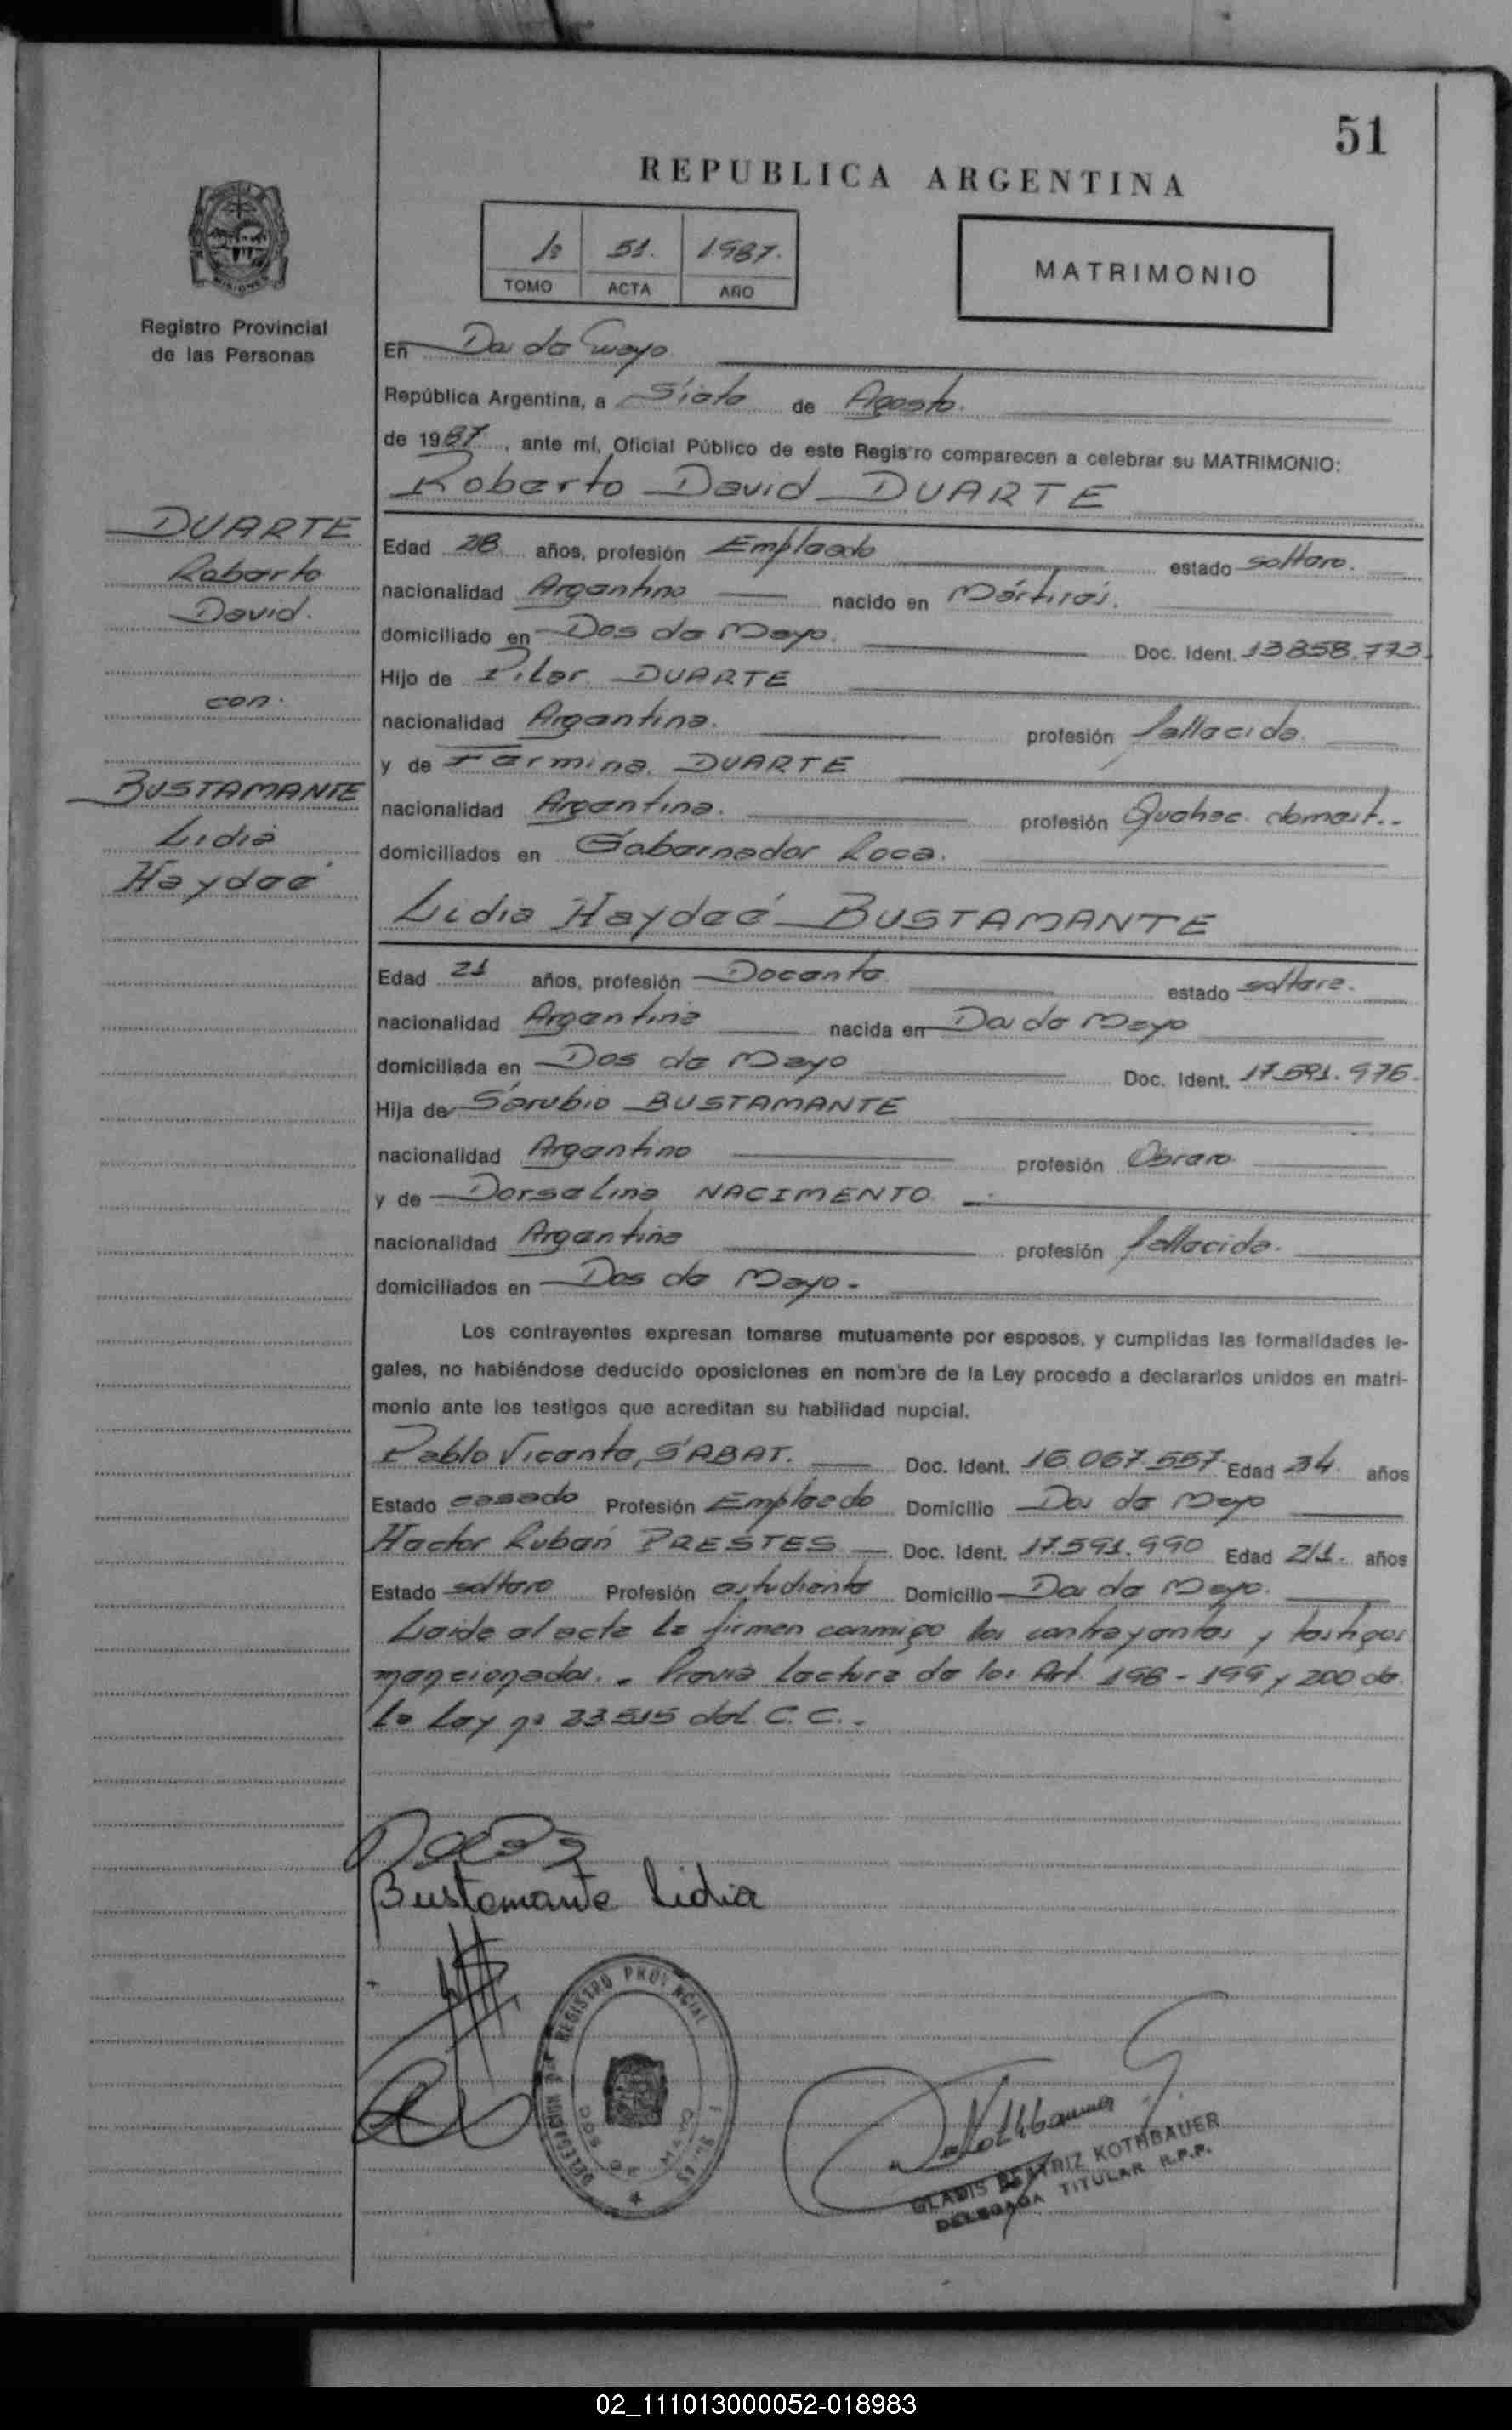 51
REPUBLICA ARGENTINA
1º 51. 1.987.
TOMO ACTA AÑO
MATRIMONIO
MISIONES
Registro Provincial
de las Personas
En Dos de Mayo
República Argentina, a Siete de Agosto.
de 1987, ante mí, Oficial Público de este Registro comparecen a celebrar su MATRIMONIO:
Roberto David DUARTE
DUARTE
Roberto
David.
con.
BUSTAMANTE
Lidia
Haydeé
Edad 28 años, profesión Empleado estado soltero.
nacionalidad Argentino nacido en Mártires.
domiciliado en Dos de Mayo. Doc. Ident. 13.858.773.
Hijo de Pilar DUARTE
nacionalidad Argentina. profesión fallecida.
y de Fermina. DUARTE
nacionalidad Argentina. profesión Quehac. domest..
domiciliados en Gobernador Roca.
Lidia Haydeé BUSTAMANTE
Edad 21 años, profesión Docente estado soltera.
nacionalidad Argentina nacida en Dos de Mayo
domiciliada en Dos de Mayo Doc. Ident. 17.591.976.
Hija de Sarubio BUSTAMANTE
nacionalidad Argentino profesión Obrero
y de Dorselina NACIMENTO
nacionalidad Argentina profesión fallecida.
domiciliados en Dos de Mayo.
Los contrayentes expresan tomarse mutuamente por esposos, y cumplidas las formalidades le-
gales, no habiéndose deducido oposiciones en nombre de la Ley procedo a declararlos unidos en matri-
monio ante los testigos que acreditan su habilidad nupcial.
Pablo Vicente, SABAT. Doc. Ident. 16.067.557 Edad 24 años
Estado casado Profesión Empleado Domicilio Dos de Mayo
Hector Rubén PRESTES Doc. Ident. 17.591.990 Edad 21. años
Estado soltero Profesión estudiante Domicilio Dos de Mayo.
Leida el acta la firman conmigo los contrayentes y testigos
mencionados. Previa lectura de los Art. 198 - 199 y 200 de
la Ley nº 23.515 del C.C..
Bustamante Lidia
REGISTRO PROVINCIAL
DELEGACION
DOS DE MAYO
Kothbauer G.
GLADIS BEATRIZ KOTHBAUER
DELEGADA TITULAR R.P.P.
02_111013000052-018983